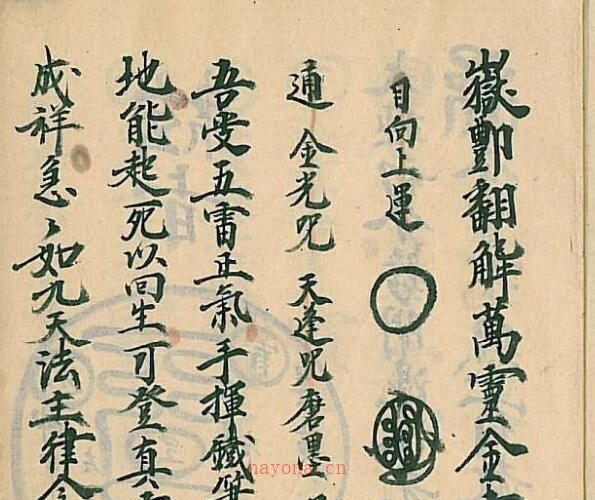 嶽酆翻解萬靈金
目向上運
通 金光咒 天逢咒磨墨
吾受五雷正氣手揮鐵筆
地能起死以回生可登真
成祥急々如九天法主律令
nayona.cn